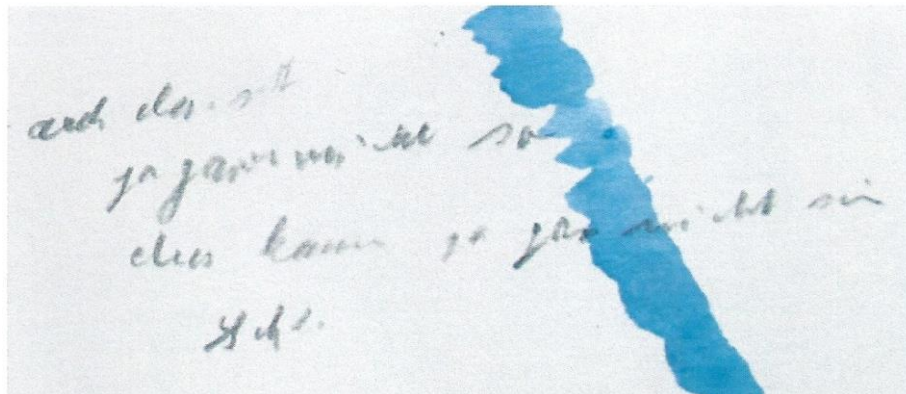 auch das ist
ja gar nicht so
das kann ja gar nicht sein